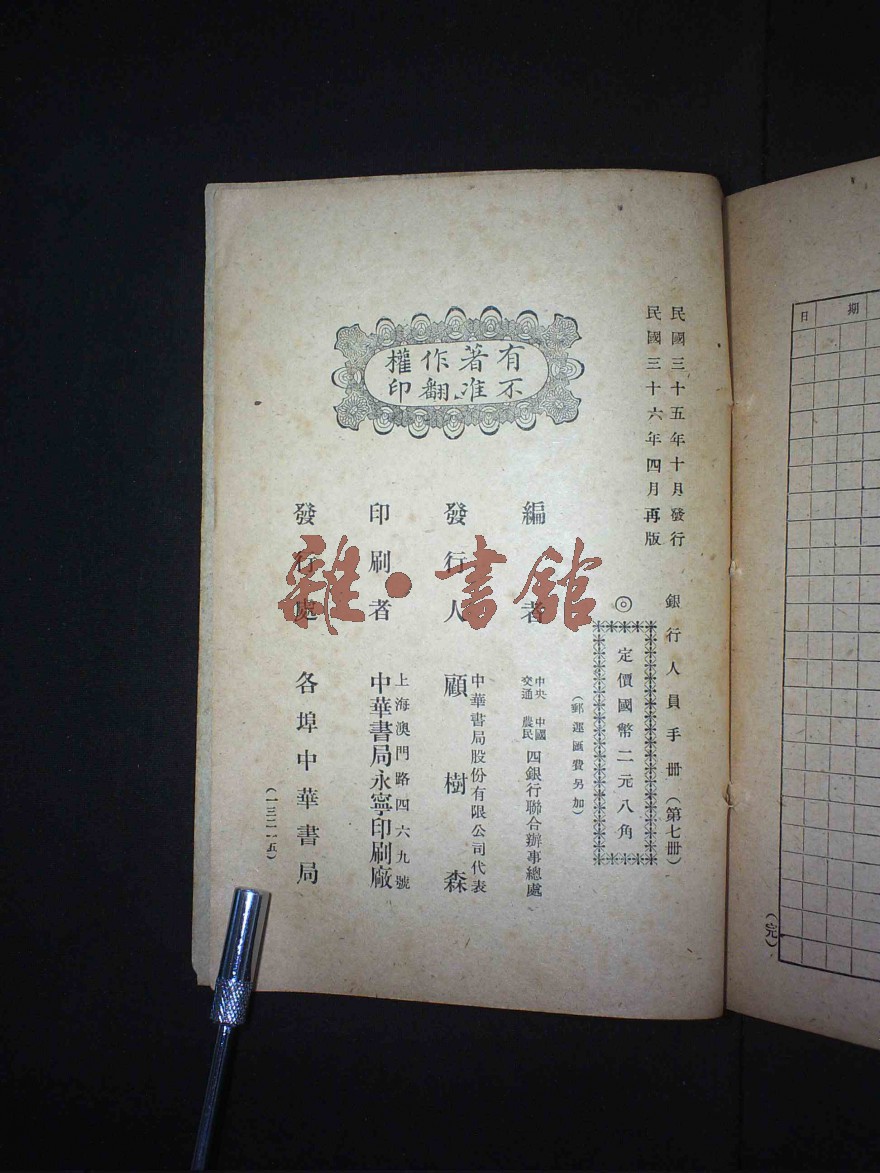 民國三十五年十月發行
民國三十六年四月再版
銀行人員手冊（第七冊）
◎定價國幣二元八角
（郵運匯費另加）
有著作權
不准翻印
編者
中央 中國
交通 農民
四銀行聯合辦事總處
發行人
中華書局股份有限公司代表
顧樹森
印刷者
上海澳門路四六九號
中華書局永寧印刷廠
發行處
各埠中華書局
（一三二一五）
雜·書館
日期
（完）